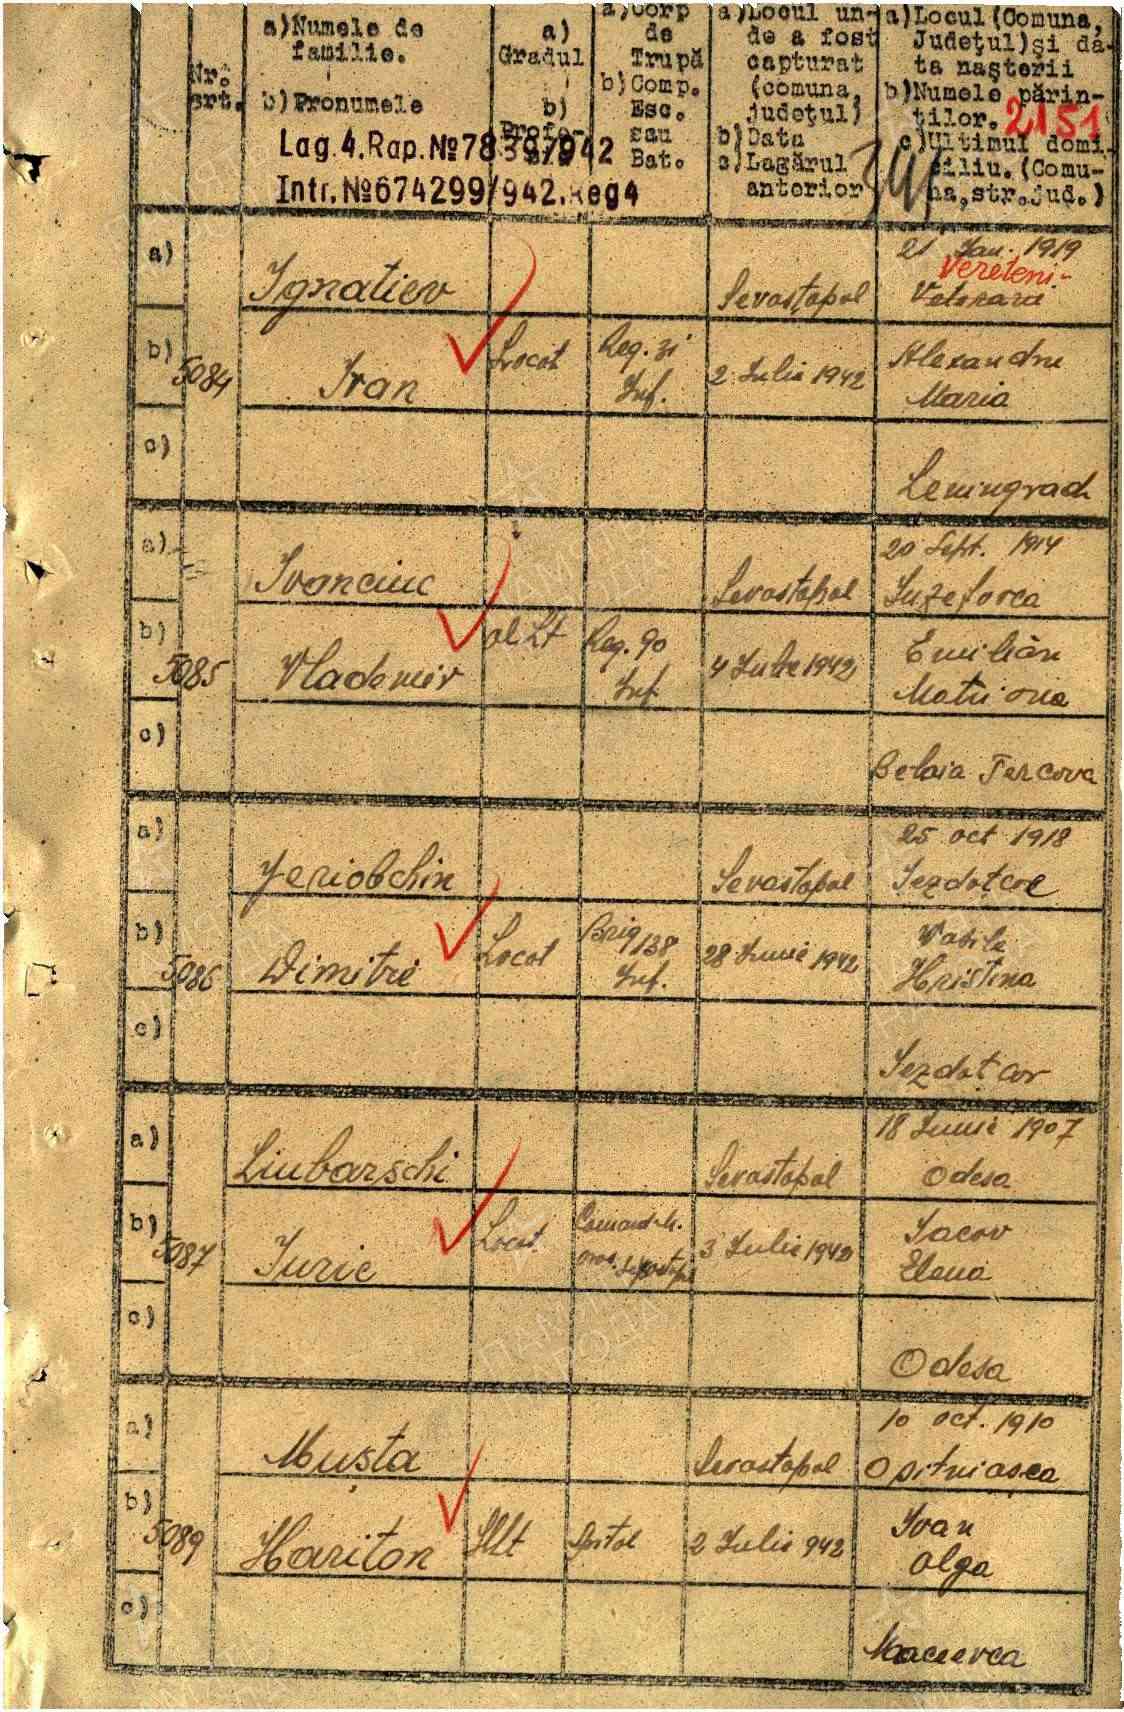 a)Numele de
familie.
b)Pronumele
Nr.
crt.
a)
Gradul
b)
Profe-
a)Corp
de
Trupă
b)Comp.
Esc.
sau
Bat.
a)Locul un-
de a fost
capturat
(comuna,
judeţul)
b)Data
c)Lagărul
anterior
a)Locul(Comuna,
Judeţul)şi da-
ta naşterii
b)Numele părin-
ţilor.
c)Ultimul domi-
ciliu.(Comu-
na,str.jud.)
2151
Lag.4.Rap.№78397942
Intr.№674299/942.Reg4
a)
Ignatiev
Sevastopol
21 Jan. 1919
Vereteni-
b)
5084
Ivan
Locot
Reg. 31
Inf.
2 Iulie 1942
Alexandru
Maria
c)
Leningrad
a)
Ivanciuc
Sevastopol
20 Sept. 1914
Iuzeforca
b)
5085
Vlademir
al Lt
Reg. 90
Inf.
4 Iulie 1942
Emilian
Matriona
c)
Belaia Tercova
a)
Jeriobchin
Sevastopol
25 oct 1918
Sezdotcoe
b)
5086
Dimitri
Locot
Brig 138
Inf.
28 Iunie 1942
Vasile
Hristina
c)
Sezdotcov
a)
Liubarschi
Sevastopol
18 Iunie 1907
Odesa
b)
5087
Iurie
Locot
3 Iulie 1942
Iacov
Elena
c)
Odesa
a)
Musta
Sevastopol
10 oct. 1910
Opitniasca
b)
5089
Hariton
Sllt
2 Iulie 942
Ivan
Olga
c)